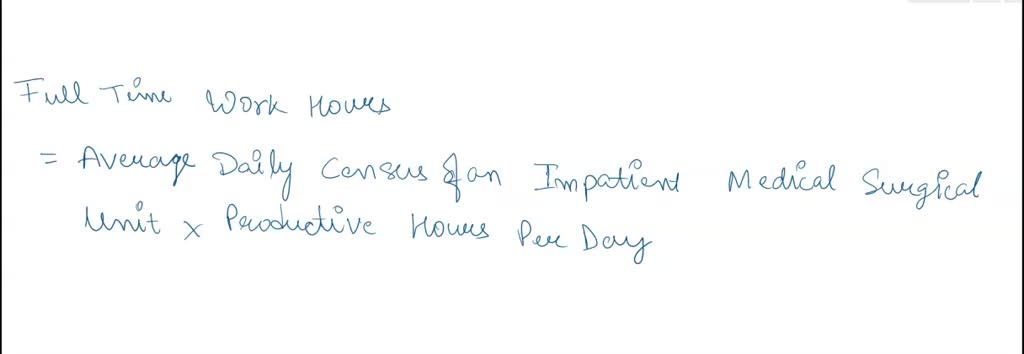 Full Time Work Hours
= Average Daily Census of an Impatient Medical Surgical
Unit x Productive Hours Per Day